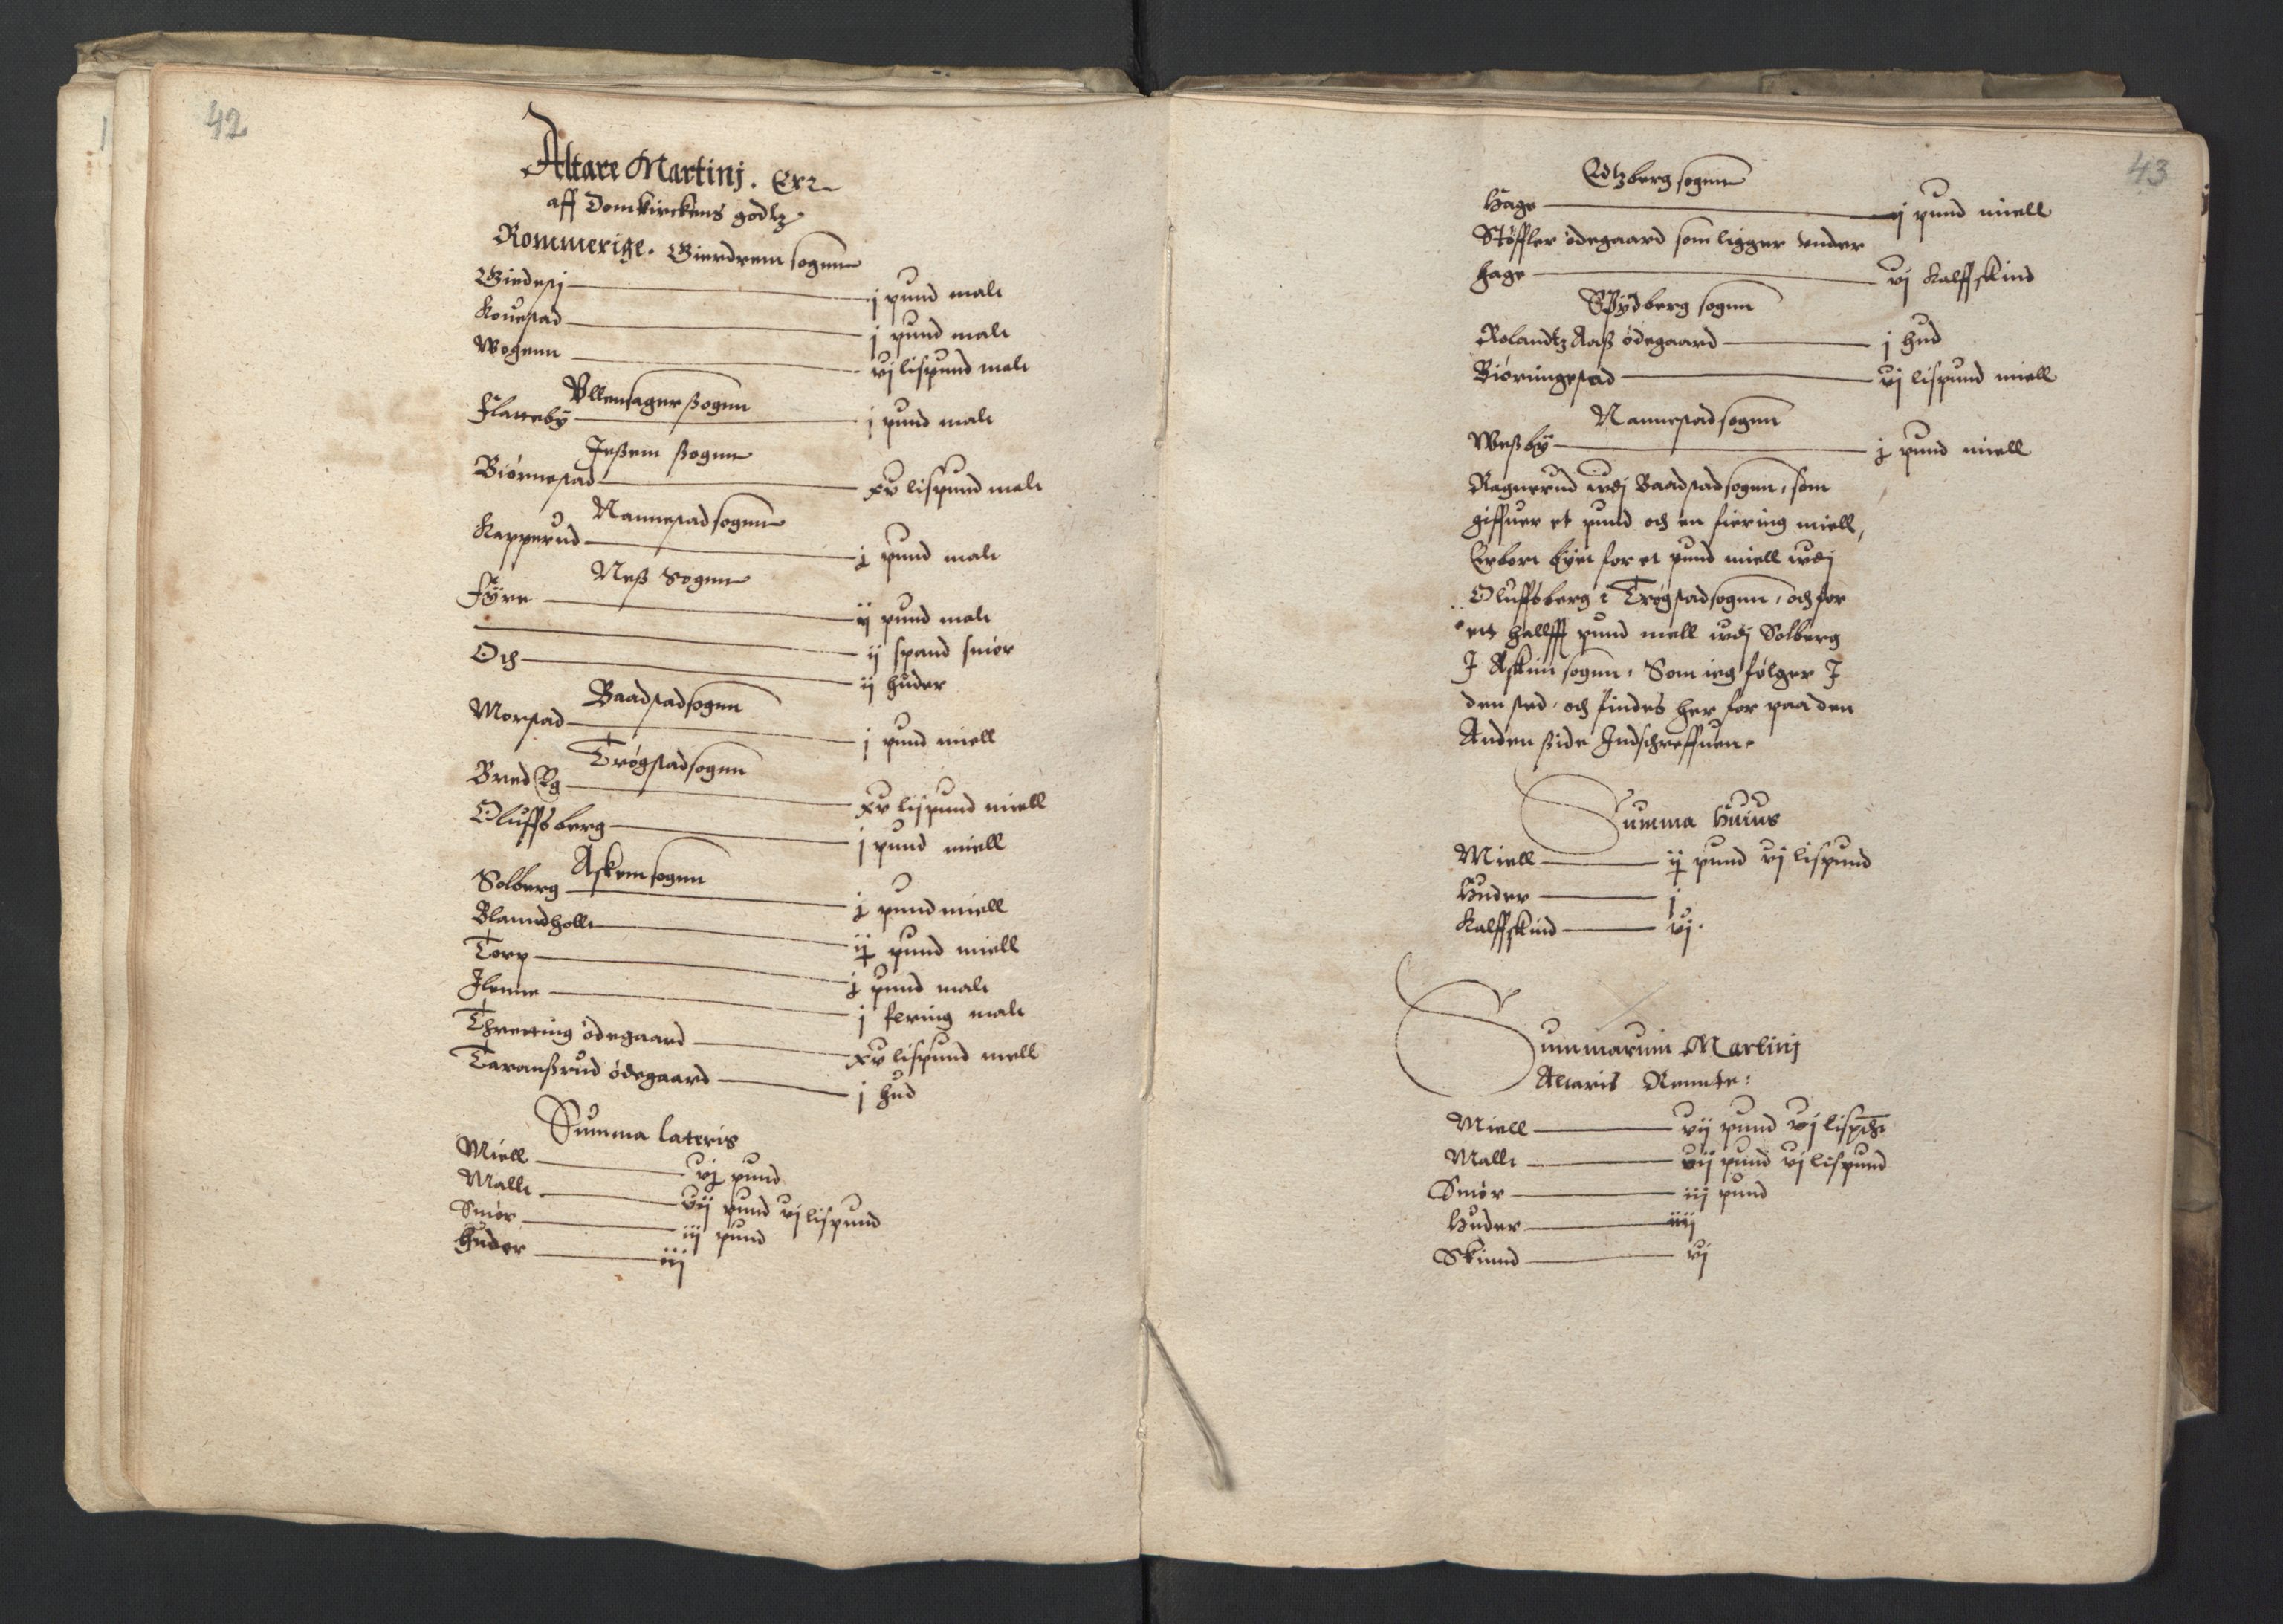 42
Altare Martinj. Er
aff Domkirckens godtz
Rommerige. Gierdrem sogenn
Giedesj j pund malt
Kouestad j pund malt
Wogenn vj lispund malt
Vllensager ßogenn
Flatteby j pund malt
Jeßem ßogenn
Biørnestad xv lispund malt
Nannestad sogenn
Kapperud j pund malt
Neß Sogenn
Fyre ij pund malt
ij spand smør
Och ij huder
Baadstad sogenn
Morstad j pund miell
Trøgstad sogenn
Bred xv lispund miell
Oluffsberg j pund miell
Askem sogenn
Solberg j pund miell
Blanndholt ij pund miell
Torp j pund malt
Ilenne j fering malt
Thretting ødegaard xv lispund mell
Taranßrud ødegaard j hud
Summa lateris
Miell vj pund
Malt vij pund vj lispund
Smør iij pund
Huder iij
43
Edtzberg sogenn
Hage j pund miell
Støffler ødegaard som ligger vnder
hage vj Kalffskind
Spydberg sogenn
Rolandtz Aaß ødegaard j hud
Biørningestad vj lispund miell
Nannestad sogenn
Weßby j pund miell
Ragnerud wdj Baadstad sogenn, som
giffuer et pund och en fiering miell,
Er bort bytt for et pund miell wdj
Oluffsberg i Trøgstad sogenn, och for
ett hallff pund mell wdj Solberg
J Askim sogenn, Som ieg følger J
den sted, och findes her for paa den
Anden ßide Indschreffuen.
Summa Huius
Miell ij pund vj lispund
Huder j
Kalffskind vj.
Summarum Martinj
Altaris Rennte:
Miell vij pund vj lispd
Malt vij pund vj lispund
Smør iij pund
Huder iiij
Skinnd vj